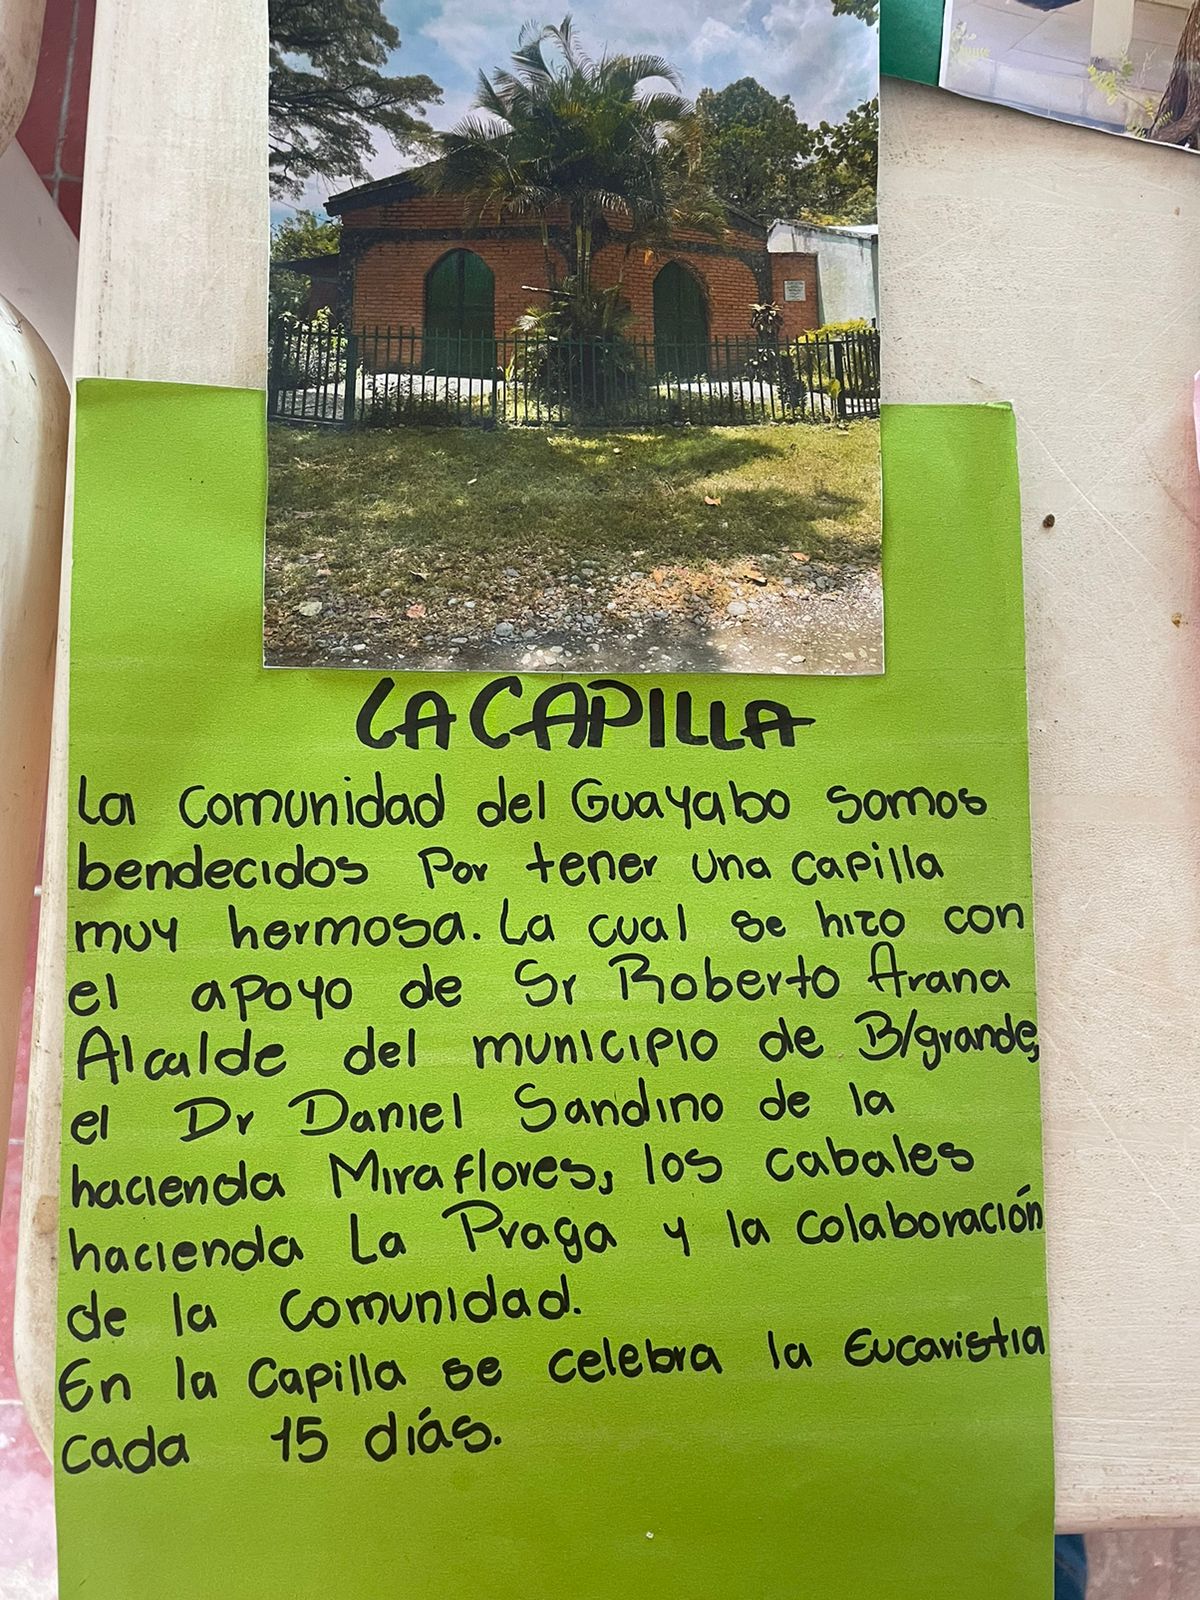 LA CAPILLA
La Comunidad del Guayabo somos
bendecidos Por tener una capilla
muy hermosa. La cual se hizo con
el apoyo de Sr Roberto Arana
Alcalde del municipio de B/grande,
el Dr Daniel Sandino de la
hacienda Miraflores, los cabales
hacienda La Praga y la colaboración
de la Comunidad.
En la Capilla se celebra la Eucaristia
cada 15 diás.